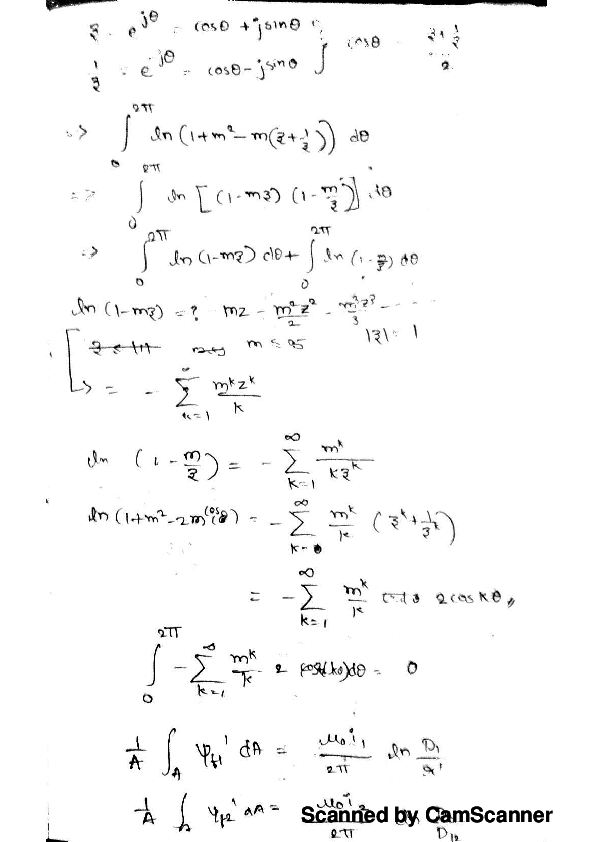 z = e^{jθ} = cosθ + jsinθ
1/z = e^{-jθ} = cosθ - jsinθ } cosθ = (z + 1/z)/2
=> ∫_0^{2π} ln (1+m² - m(z + 1/z)) dθ
=> ∫_0^{2π} ln [(1-mz) (1 - m/z)] dθ
=> ∫_0^{2π} ln (1-mz) dθ + ∫_0^{2π} ln (1 - m/z) dθ
ln (1-mz) = ? mz - m²z²/2 - m³z³/3 ----
m ≤ |z| = 1
↳ = - ∑_{k=1}^{∞} m^k z^k / k
ln (1 - m/z) = - ∑_{k=1}^{∞} m^k / (k z^k)
ln (1+m²-2m cosθ) = - ∑_{k=0}^{∞} m^k/k (z^k + 1/z^k)
= - ∑_{k=1}^{∞} m^k/k 2 cos kθ
∫_0^{2π} - ∑_{k=1}^{∞} m^k/k 2 cos(kθ) dθ = 0
1/A ∫_A φ_{f1}' dA = μ₀i₁/2π ln D₁/r'
1/A ∫ φ_{f2}' dA = μ₀i₂/2π D₁₂
Scanned by CamScanner